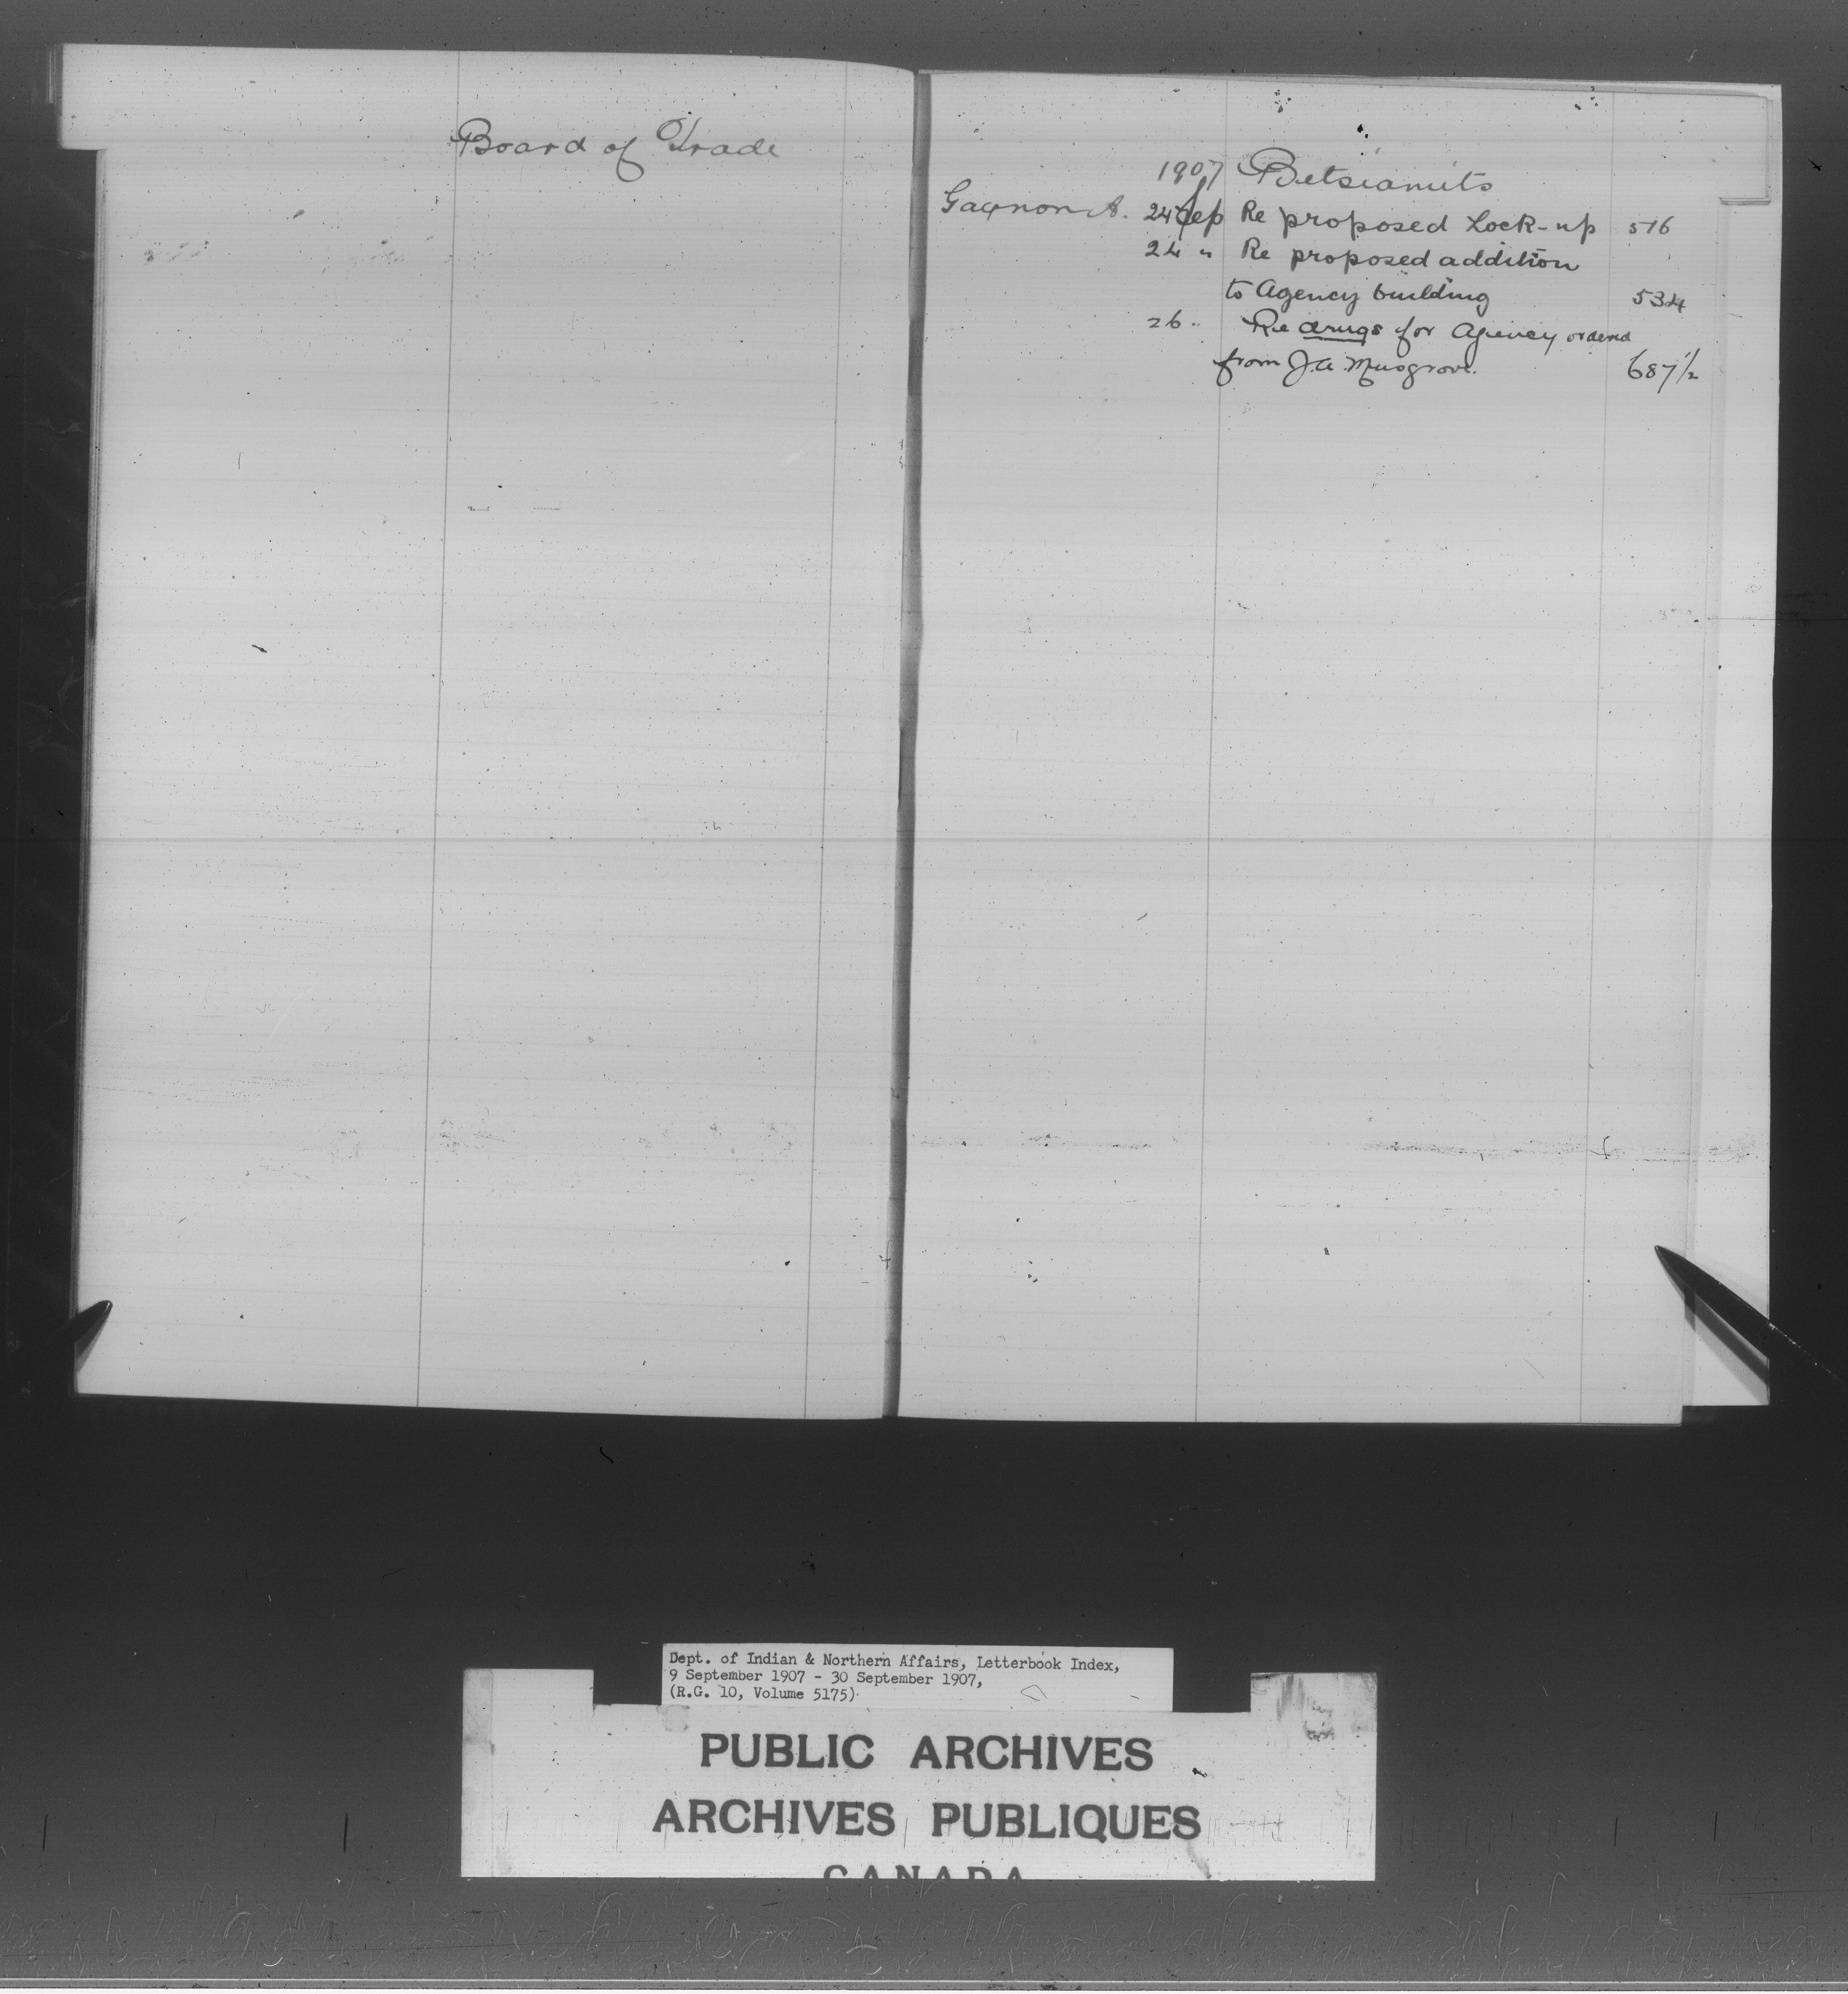 Board of Trade
1907 Betsiamits
Gagnon A. 24 Sep Re proposed Lock-up 516
24 " Re proposed addition
to Agency building 534
26 " Re drugs for Agency ordered
from J.A. Musgrove. 687 1/2
Dept. of Indian & Northern Affairs, Letterbook Index,
9 September 1907 - 30 September 1907,
(R.G. 10, Volume 5175)
PUBLIC ARCHIVES
ARCHIVES PUBLIQUES
CANADA